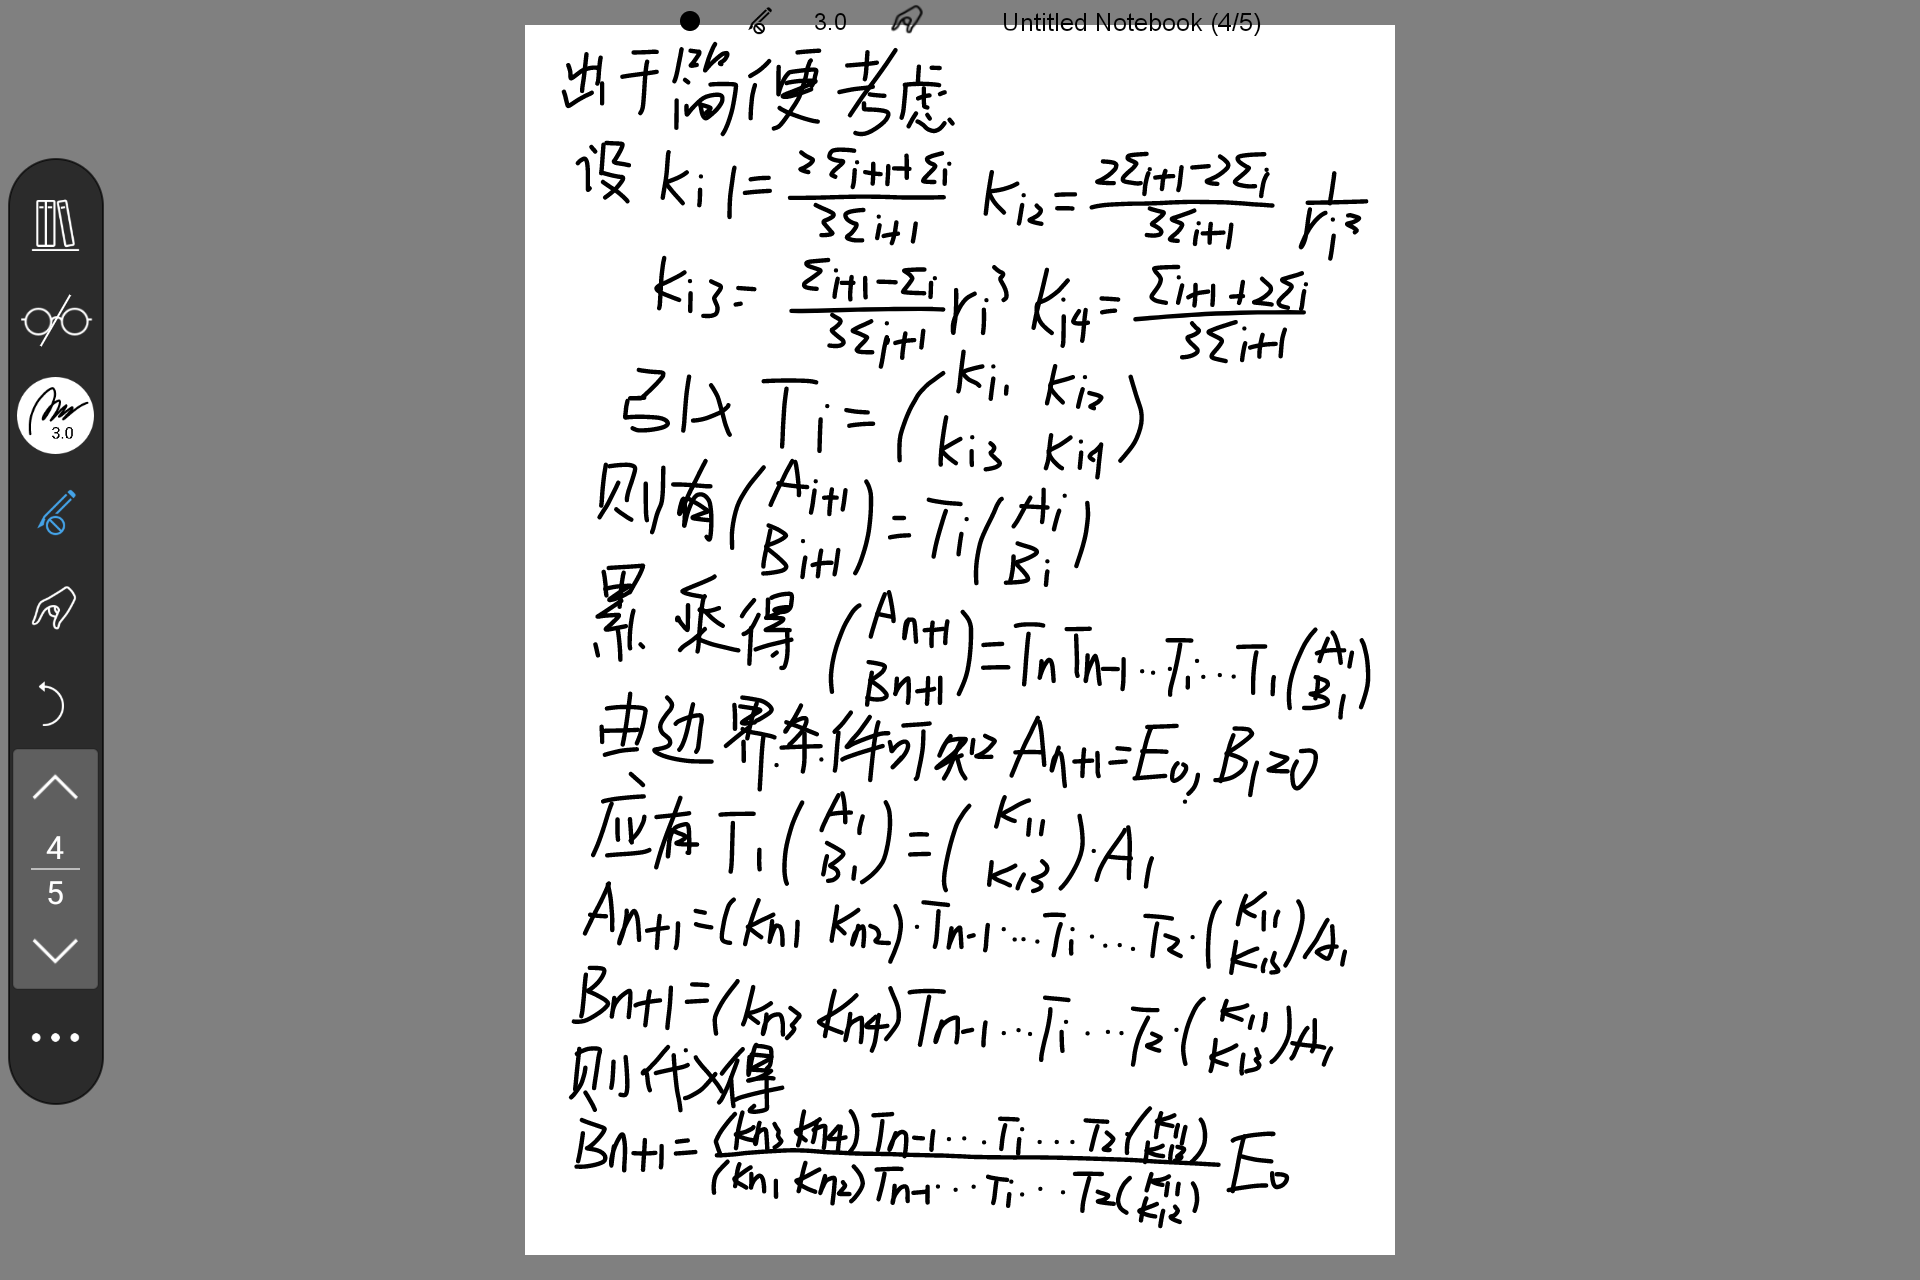 Untitled Notebook (4/5)
3.0
出于简便考虑
设 K_{i1} = \frac{2Σ_{i+1}+Σ_i}{3Σ_{i+1}} K_{i2} = \frac{2Σ_{i+1}-2Σ_i}{3Σ_{i+1}} \frac{1}{r_i^3}
K_{i3} = \frac{Σ_{i+1}-Σ_i}{3Σ_{i+1}} r_i^3 K_{i4} = \frac{Σ_{i+1}+2Σ_i}{3Σ_{i+1}}
引入 T_i = \begin{pmatrix} K_{i1} & K_{i2} \\ K_{i3} & K_{i4} \end{pmatrix}
则有 \begin{pmatrix} A_{i+1} \\ B_{i+1} \end{pmatrix} = T_i \begin{pmatrix} A_i \\ B_i \end{pmatrix}
累乘得 \begin{pmatrix} A_{n+1} \\ B_{n+1} \end{pmatrix} = T_n T_{n-1} ... T_i ... T_1 \begin{pmatrix} A_1 \\ B_1 \end{pmatrix}
由边界条件可知 A_{n+1} = E_0, B_1 = 0
应有 T_1 \begin{pmatrix} A_1 \\ B_1 \end{pmatrix} = \begin{pmatrix} K_{11} \\ K_{13} \end{pmatrix} · A_1
A_{n+1} = (K_{n1} K_{n2}) · T_{n-1} · ... T_i · ... T_2 · \begin{pmatrix} K_{11} \\ K_{13} \end{pmatrix} A_1
B_{n+1} = (K_{n3} K_{n4}) T_{n-1} ... T_i ... T_2 · \begin{pmatrix} K_{11} \\ K_{13} \end{pmatrix} A_1
则代入得
B_{n+1} = \frac{(K_{n3} K_{n4}) T_{n-1} ... T_i ... T_2 \begin{pmatrix} K_{11} \\ K_{13} \end{pmatrix}}{(K_{n1} K_{n2}) T_{n-1} ... T_i ... T_2 \begin{pmatrix} K_{11} \\ K_{12} \end{pmatrix}} E_0
3.0
4
5